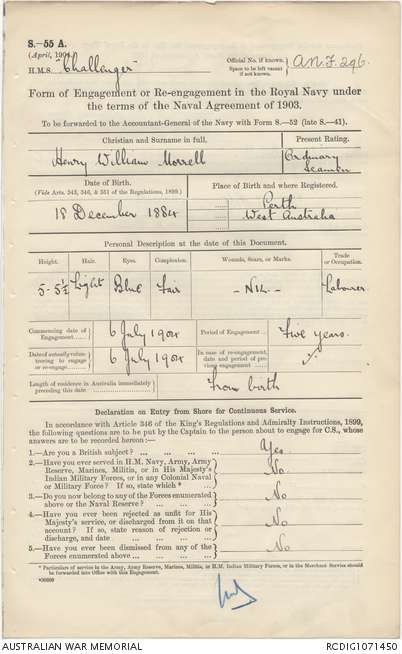 S.—55 A.
(April, 1904.)
H.M.S. "Challenger"
Official No. if known.
Space to be left vacant
if not known.
A.N.F. 296.
Form of Engagement or Re-engagement in the Royal Navy under
the terms of the Naval Agreement of 1903.
To be forwarded to the Accountant-General of the Navy with Form S.—52 (late S.—41).
Christian and Surname in full. Present Rating.
Henry William Morrell Ordinary Seaman
Date of Birth. Place of Birth and where Registered.
(Vide Arts. 343, 346, & 351 of the Regulations, 1899.)
18 December 1884 Perth
West Australia
Personal Description at the date of this Document.
Height. Hair. Eyes. Complexion. Wounds, Scars, or Marks. Trade or Occupation.
5-5½ Light Blue Fair - NIL - Labourer
Commencing date of Engagement 6 July 1904 Period of Engagement Five years.
Date of actually volunteering to engage or re-engage 6 July 1904 In case of re-engagement, date and period of previous engagement
Length of residence in Australia immediately preceding this date From birth
Declaration on Entry from Shore for Continuous Service.
In accordance with Article 346 of the King's Regulations and Admiralty Instructions, 1899,
the following questions are to be put by the Captain to the person about to engage for C.S., whose
answers are to be recorded hereon:—
1.—Are you a British subject? ... Yes
2.—Have you ever served in H.M. Navy, Army, Army
Reserve, Marines, Militia, or in His Majesty's
Indian Military Forces, or in any Colonial Naval
or Military Force? If so, state which * ... No
3.—Do you now belong to any of the Forces enumerated
above or the Naval Reserve? ... No
4.—Have you ever been rejected as unfit for His
Majesty's service, or discharged from it on that
account? If so, state reason of rejection or
discharge, and date ... No
5.—Have you ever been dismissed from any of the
Forces enumerated above ... No
* Particulars of service in the Army, Army Reserve, Marines, Militia, or H.M. Indian Military Forces, or in the Merchant Service should
be forwarded into Office with this Engagement.
AUSTRALIAN WAR MEMORIAL RCDIG1071450